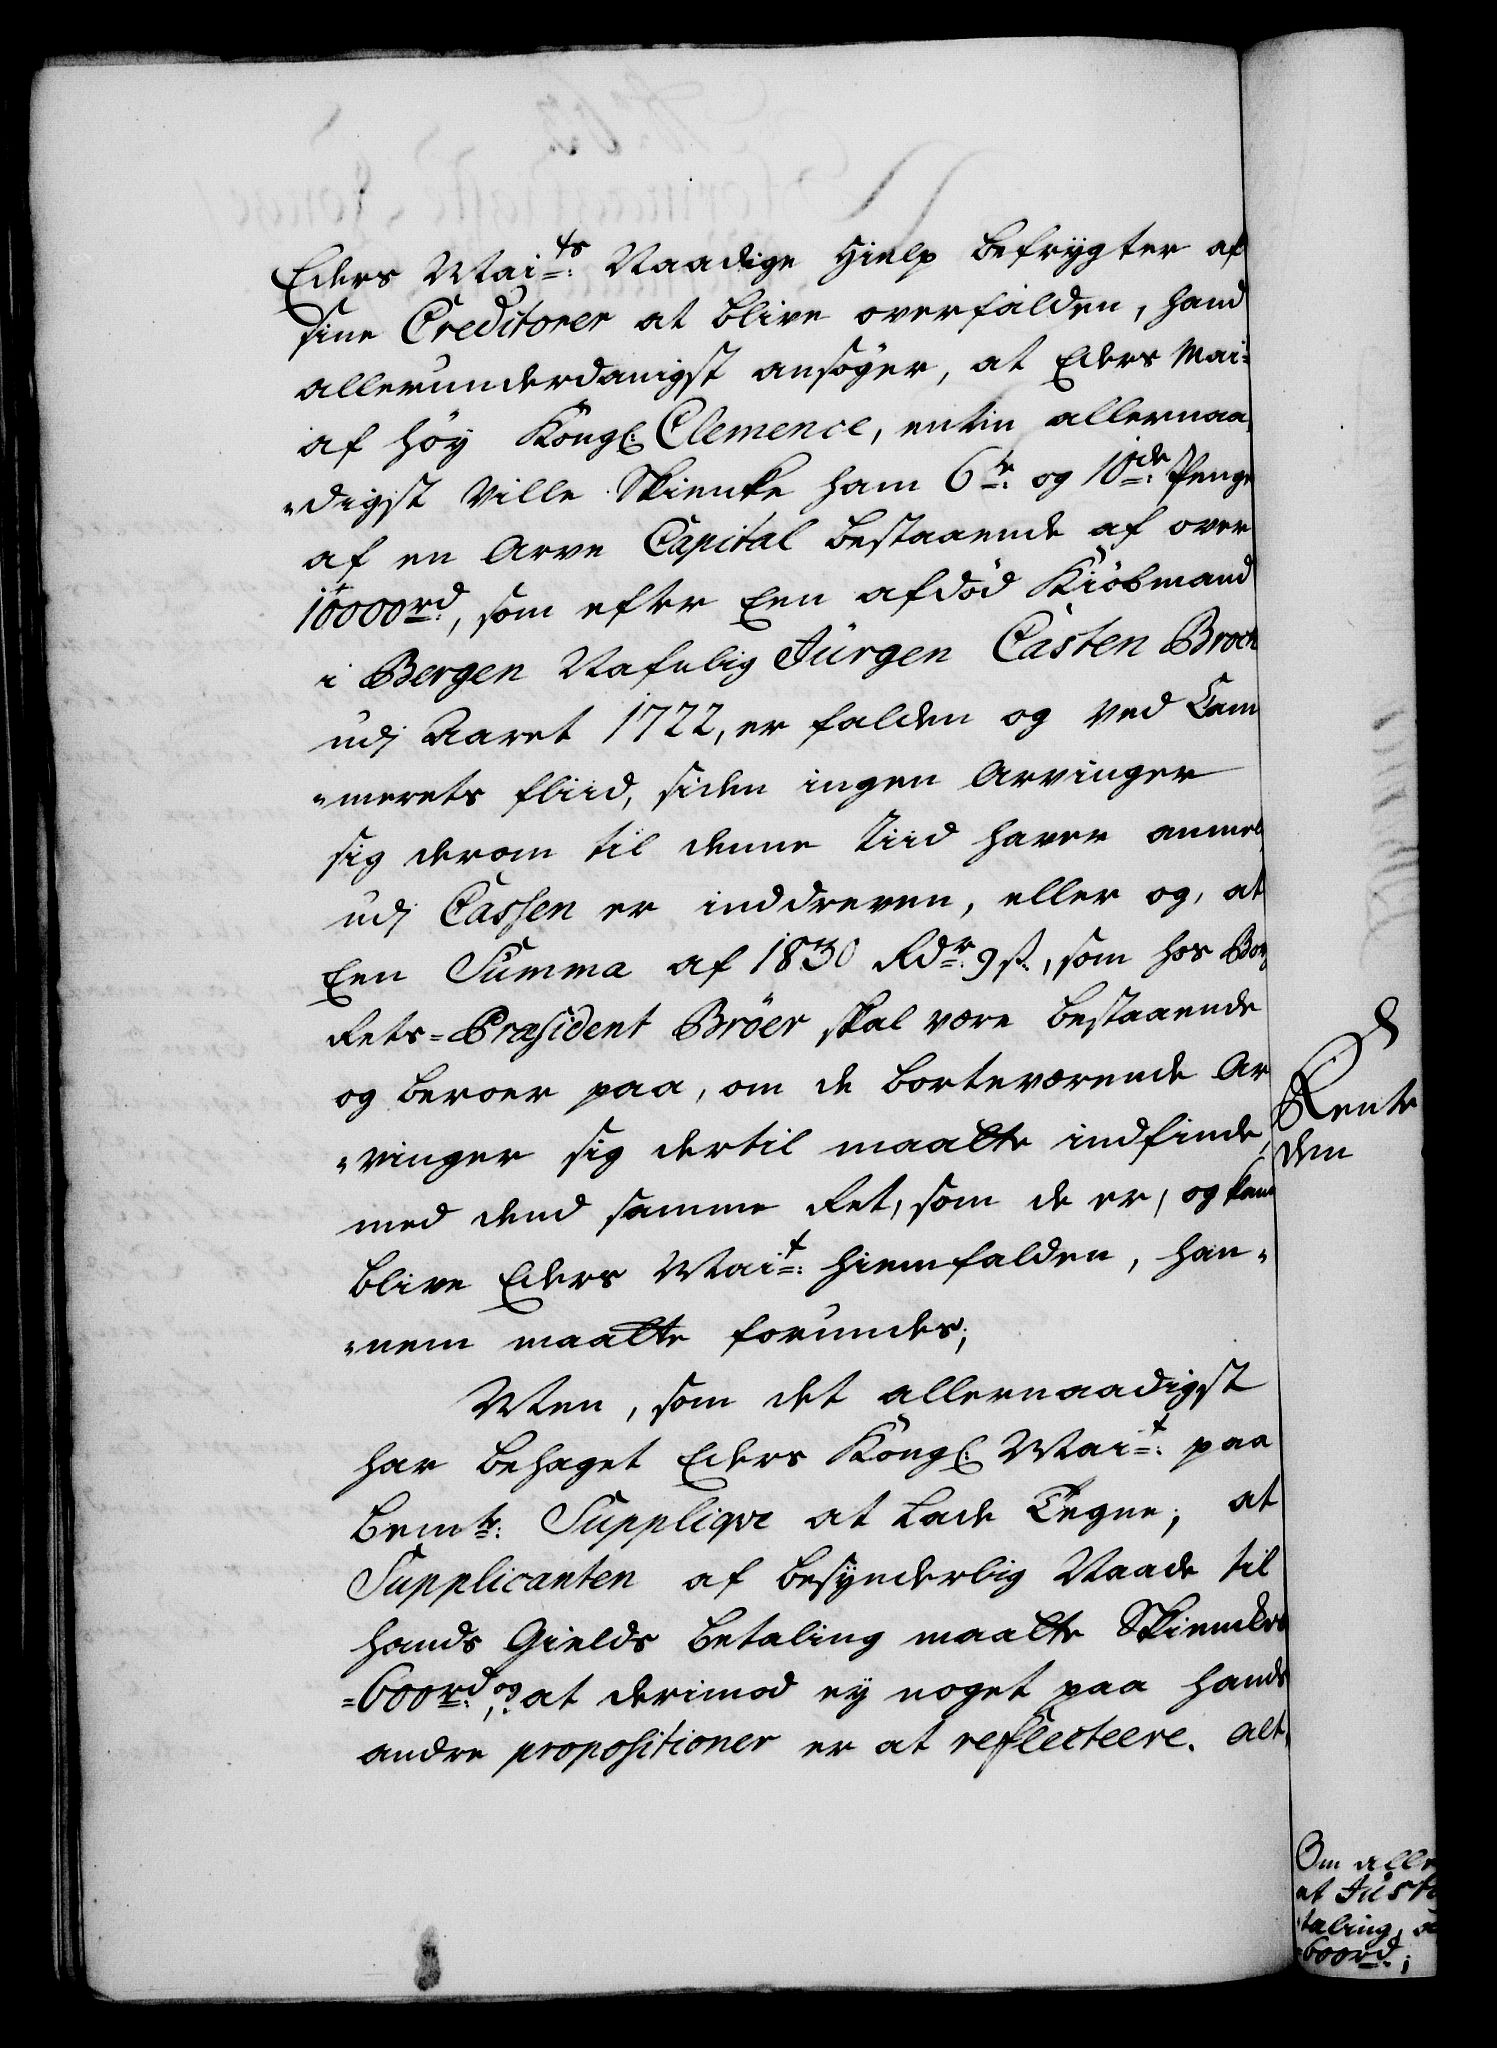 Eders Maits: Naadige Hielp befrygter af
sine Creditorer at blive overfalden, hand
allerunderdanigst ansøger, at Eders Mai:
af høy Kongl: Clemence, enten allernaa„
„digst ville Skienke ham 6te: og 10de: Penge
af en Arve Capital bestaaende af over
10000rd:, som efter Een afdød Kiøbmand
i Bergen Nafnlig Jürgen Casten Broch
udj Aaret 1722, er falden og ved Cam
„merets fliid, siden ingen Arvinger
sig derom til denne Tiid haver anmel„
udj Cassen er inddreven, eller og, at
Een Summa af 1830 Rdr: 9 s:, som hos Borg
Rets-Præsident Bröer skal være bestaaende
og beroer paa, om de borteværende Ar
„vinger sig dertil maatte indfinde,
med dend samme Ret, som de er, og kand
blive Eders Mait: hiemfalden, han„
„nem maatte forundes;
Men, som det allernaadigst
har behaget Eders Kongl: Mait: paa
bemte: Supplique at lade Tegne; at
Supplicanten af besynderlig Naade til
hands Gields betaling maatte Skienckes
600rd:, og at derimod ey noget paa hands
andre propositioner er at reflecteere. alt„
Rente
den
Om alle
at Just
taling, 
600rd:;